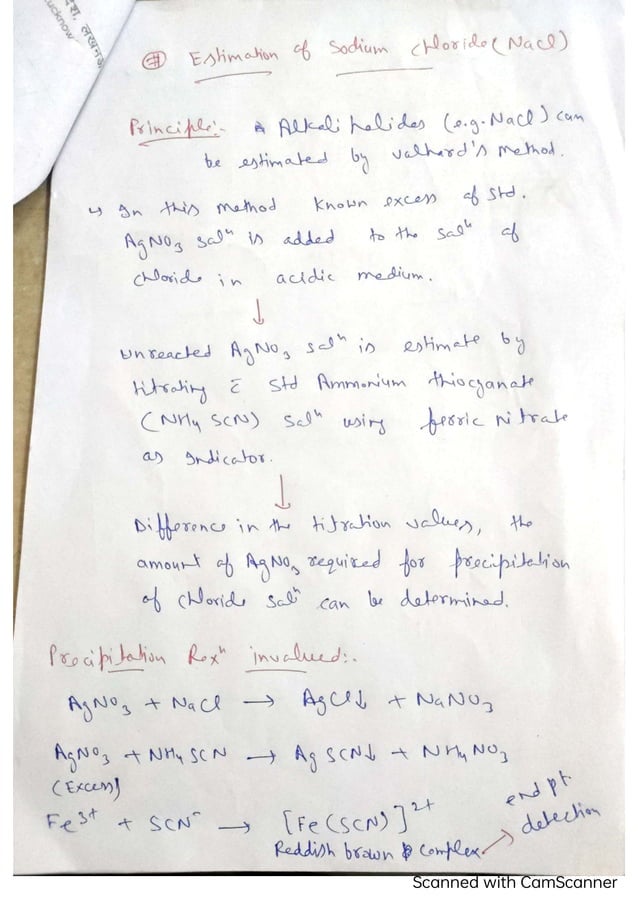 दश, लखनऊ
ucknow
# Estimation of Sodium chloride (NaCl)
Principle:- Alkali halides (e.g. NaCl) can
be estimated by valhard's method.
↳ In this method known excess of std.
AgNO3 solⁿ is added to the solⁿ of
chloride in acidic medium.
↓
Unreacted AgNO3 solⁿ is estimate by
titrating c̄ Std Ammonium thiocyanate
(NH4SCN) solⁿ using ferric nitrate
as Indicator.
↓
Difference in the titration values, the
amount of AgNO3 required for precipitation
of chloride solⁿ can be determined.
Precipitation Rexⁿ involved:-
AgNO3 + NaCl → AgCl↓ + NaNO3
AgNO3 + NH4SCN → AgSCN↓ + NH4NO3
(Excess)
Fe³⁺ + SCN⁻ → [Fe(SCN)]²⁺
Reddish brown complex → end pt. detection
Scanned with CamScanner